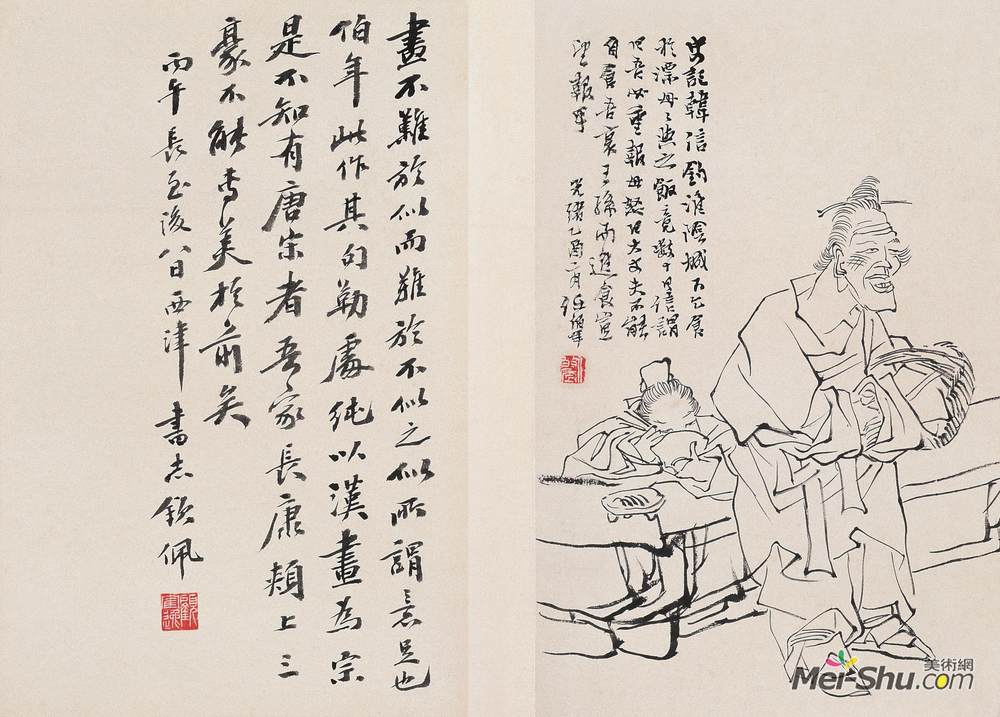 史記韓信釣淮陰城下乞食
於漂母〻與之飯竟數十日信謂
曰吾必重報母怒曰大丈夫不能
自食吾哀王孫而進食豈
望報乎 光緒乙酉二月任伯年
畫不難於似而難於不似之似所謂意足也
伯年此作其勾勒處純以漢畫為宗
是不知有唐宋者吾家長康頰上三
豪不能專美於前矣
丙午長至後八日西津書志欽佩
美術網
Mei-Shu.com